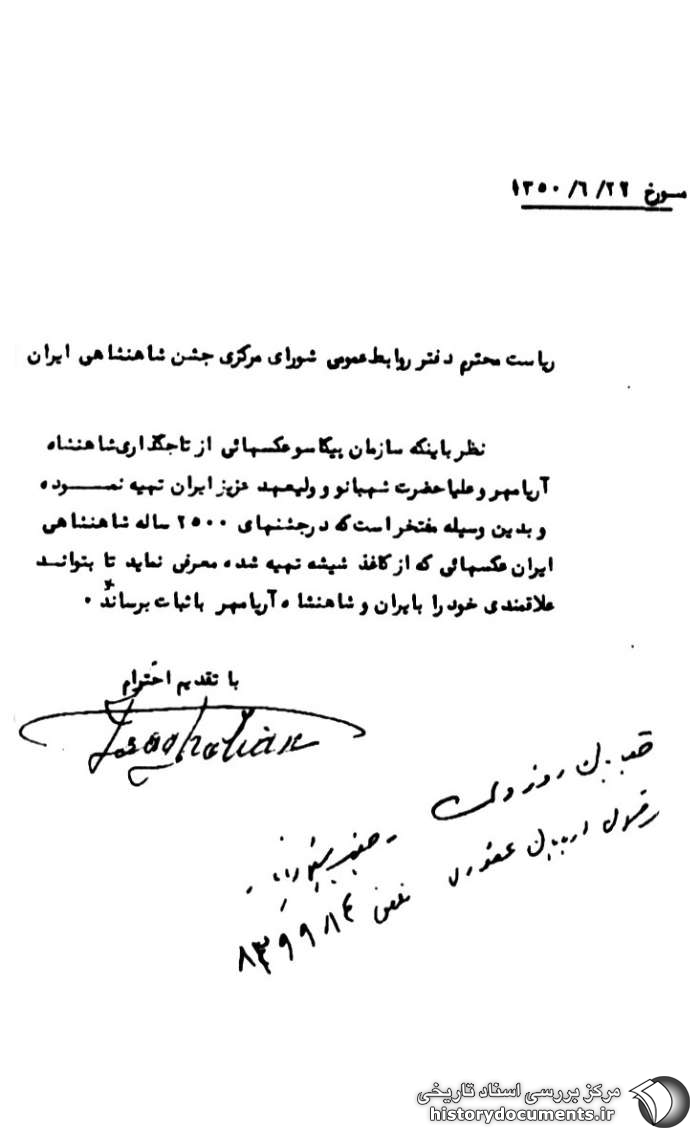 مورخ ۱۳۵۰/۶/۲۲
ریاست محترم دفتر روابط عمومی شورای مرکزی جشن شاهنشاهی ایران
نظر باینکه سازمان پیکاسو عکسهائی از تاجگذاری شاهنشاه
آریامهر و علیاحضرت شهبانو و ولیعهد عزیز ایران تهیه نمـــوده
و بدین وسیله مفتخر است که در جشنهای ۲۵۰۰ ساله شاهنشاهی
ایران عکسهائی که از کاغذ شیشه تهیه شده معرفی نماید تا بتوانـد
علاقمندی خود را بایران و شاهنشاه آریامهر باثبات برساند .
با تقدیم احترام
خیابان روزولت
تلفن ۸۳۹۹۸۴
مرکز بررسی اسناد تاریخی
historydocuments.ir